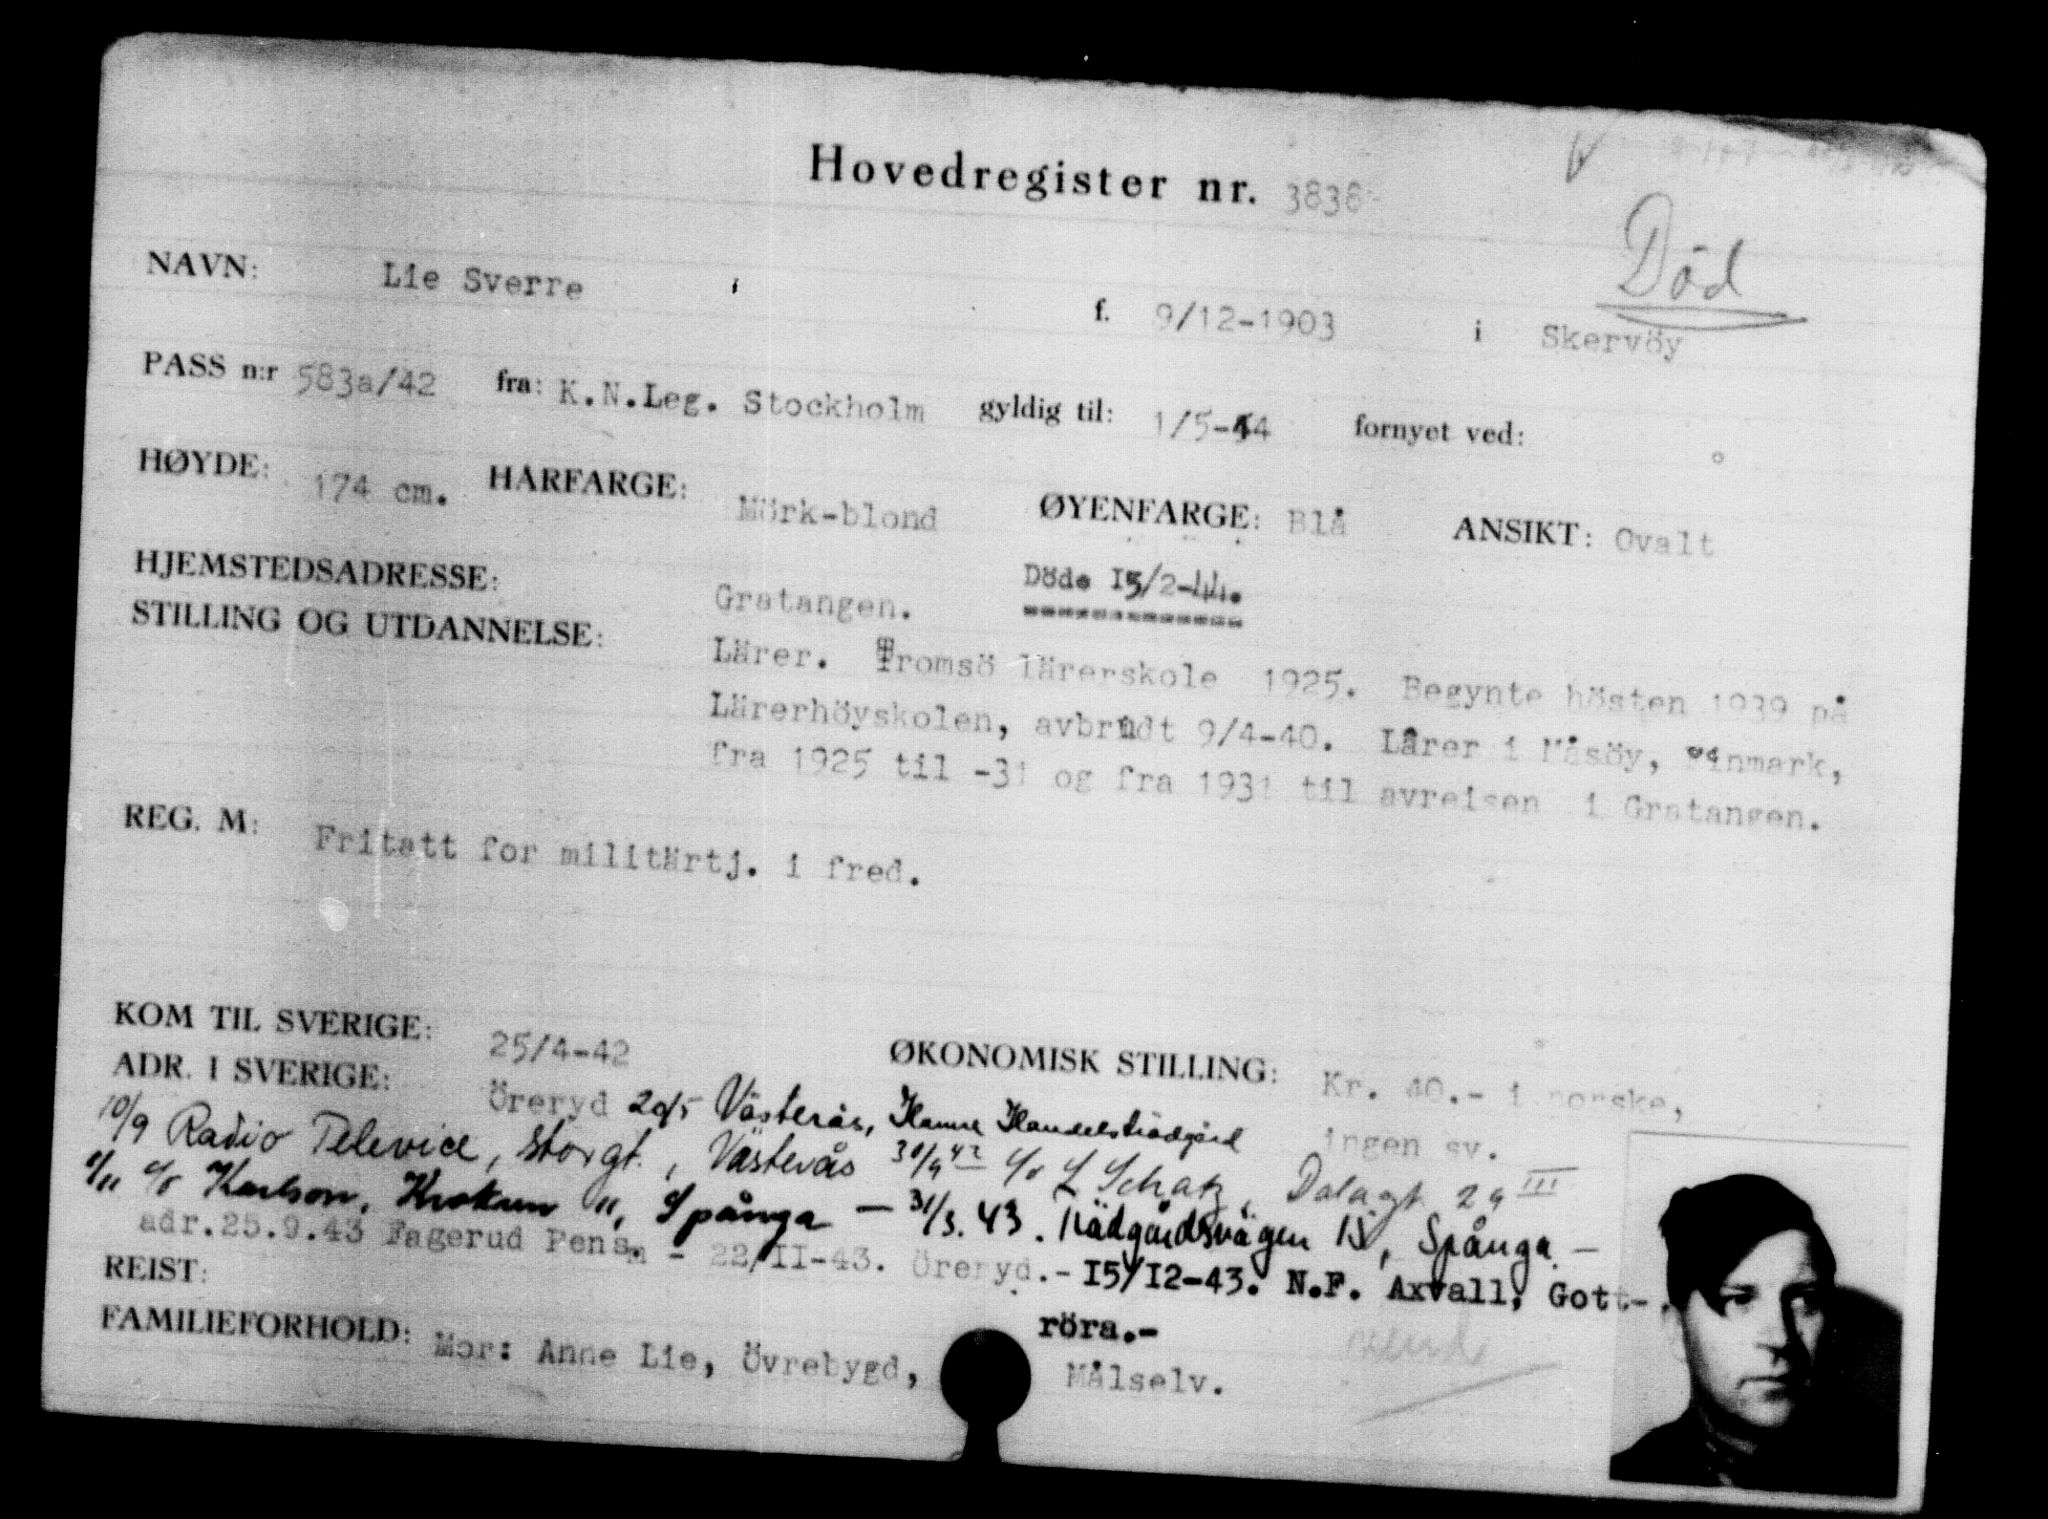 Hovedregister nr. 3838
Död
NAVN: Lie Sverre f. 9/12-1903 i Skervöy
PASS n:r 583a/42 fra: K.N.Leg. Stockholm gyldig til: 1/5-44 fornyet ved:
HØYDE: 174 cm. HÅRFARGE: Mörk-blond ØYENFARGE: Blå ANSIKT: Ovalt
HJEMSTEDSADRESSE: Gratangen. Död. 15/2-44.
STILLING OG UTDANNELSE: Lärer. Tromsö lärerskole 1925. Begynte hösten 1939 på
Lärerhöyskolen, avbrudt 9/4-40. Lärer i Måsöy, Finmark,
fra 1925 til -31 og fra 1931 til avreisen i Gratangen.
REG. M: Fritatt for militärtj. i fred.
KOM TIL SVERIGE: 25/4-42 ØKONOMISK STILLING: Kr. 40.- i norske,
ADR. I SVERIGE: Öreryd 20/5 Västerås, Hamre Handelsträdgård ingen sv.
10/9 Radio Televice, Storgt., Västerås 30/9 42 c/o L Schatz, Dalagt 29 III
1/11 c/o Karlson, Krokum 11, Spånga — 31/3.43. Trädgårdsvägen 15, Spånga —
adr.25.9.43 Fagerud Pens. - 22/II-43. Öreryd.- I5/I2-43. N.F. Axvall, Gott-
REIST: röra.-
FAMILIEFORHOLD: Mor: Anne Lie, Övrebygd, Målselv.